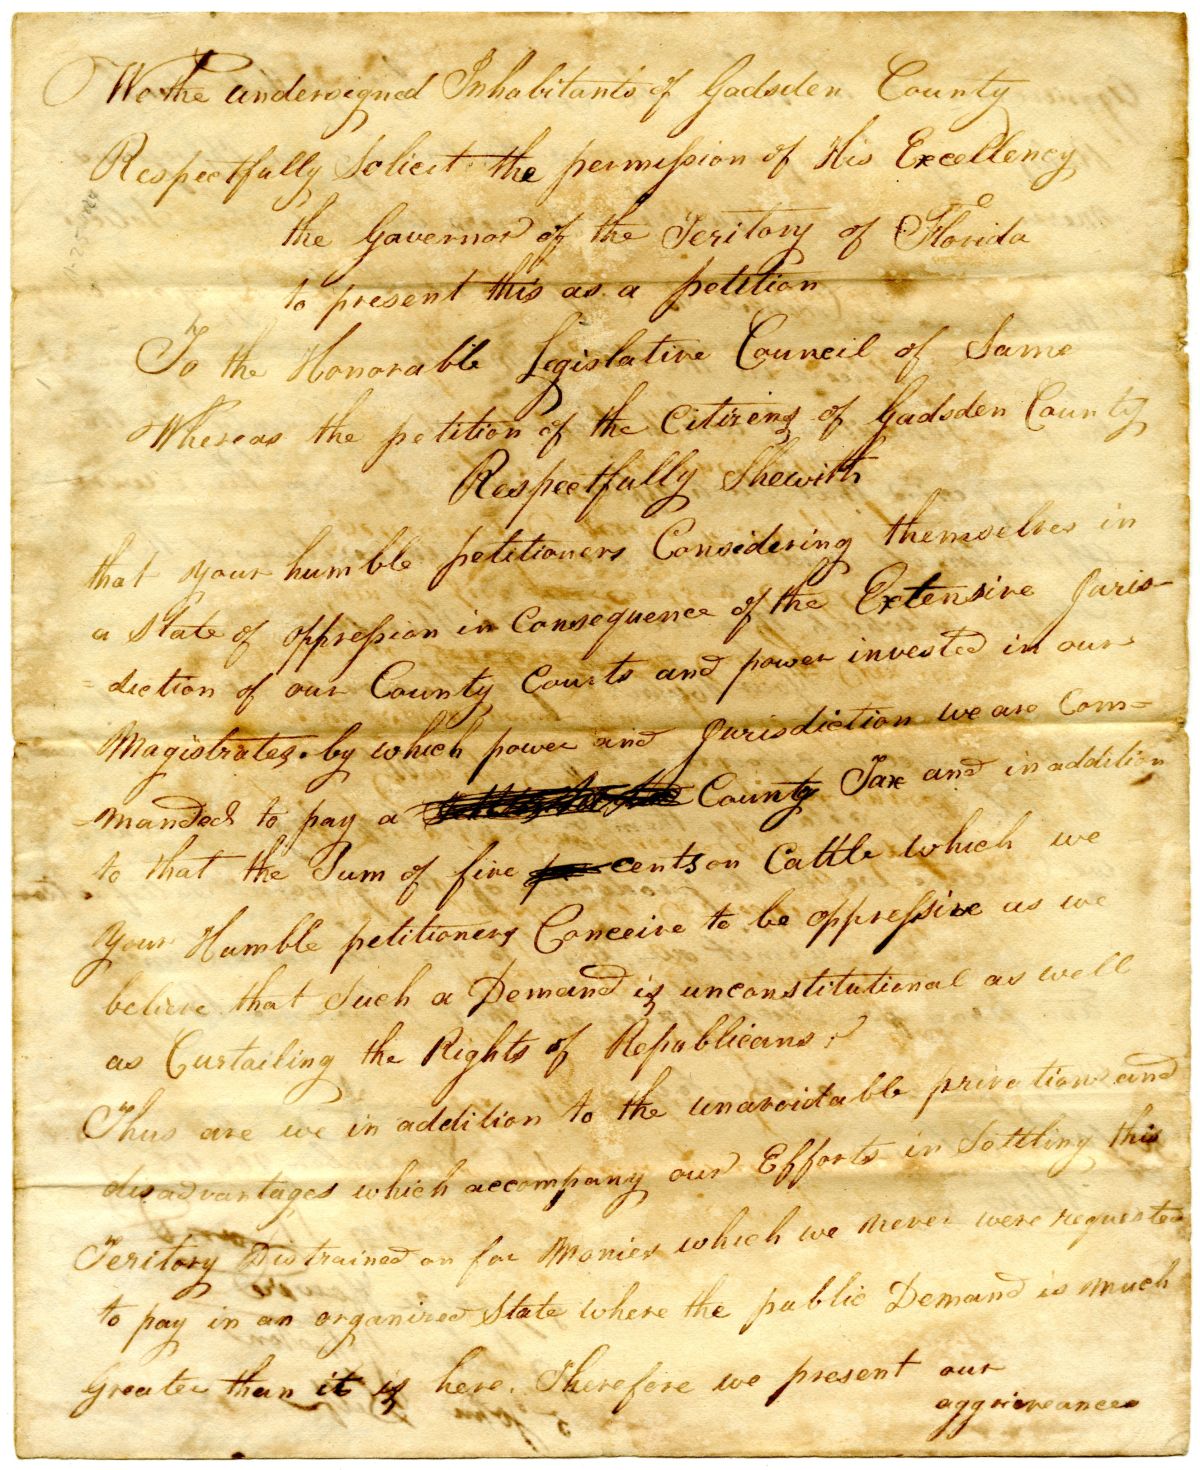 We the undersigned Inhabitants of Gadsden County
Respectfully Solicit the permission of His Excellency
the Governor of the Teritory of Florida
to present this as a petition
To the Honorable Legislative Council of Same
Whereas the petition of the Citizens of Gadsden County
Respectfully Shewith
that your humble petitioners Considering themselves in
a State of oppression in Consequence of the Extensive Juris-
=diction of our County Courts and power invested in our
Magistrates by which power and Jurisdiction we are Com=
=manded to pay a County Tax and in addition
to that the Sum of five cents on Cattle which we
your Humble petitioners Conceive to be oppressive as we
believe that Such a Demand is unconstitutional as well
as Curtailing the Rights of Republicans;
Thus are we in addition to the unavoidable privations and
disadvantages which accompany our Efforts in Settling this
Teritory Distrained on for Monies which we never were requested
to pay in an organized State where the public Demand is much
Greater than it is here. Therefore we present our
aggrieveances